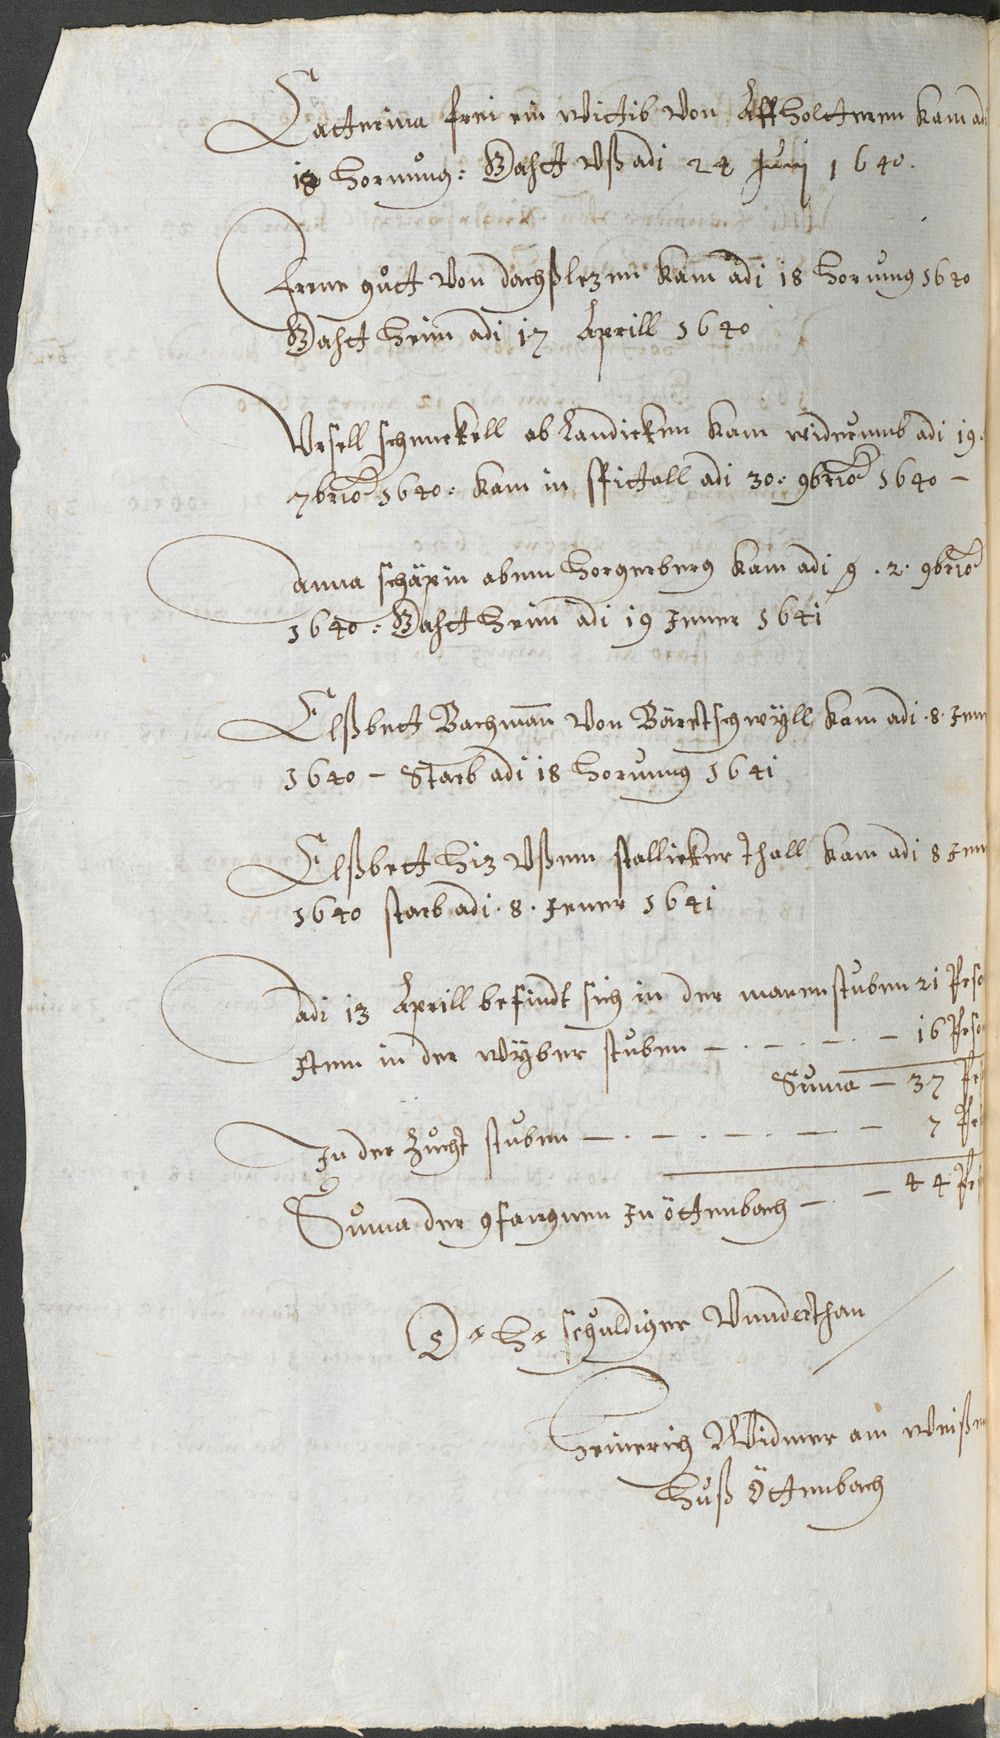 Catterina frei ein wittib von Affholtteren kam adi
18 hornung: Gahtt uß adi 24 Junj 1640.
Frene gůtt von dachßlezen kam adi 18 hornung 1640
Gahtt heim adi 17 Aprill 1640
Vrsell schmuckell ab Landicken kam widerumb adi 19
7brio 1640: kam in spittall adi 30: 9brio 1640 –
anna schärin abem horgerberg kam adi 9 . 2. 9brio
1640: Gahtt heim adi 19 Jener 1641
Elßbett Bachman von Bäretschwyll kam adi .8. Jen
1640 – Starb adi 18 hornung 1641
Elßbett hiz ußem stallicker thall kam adi 8 Jen
1640 starb adi .8. Jener 1641
adi 13 Aprill befindt sich in der manenstuben 21 Perso
Item in der wyber stuben – . – . – . – 16 Perso
Suma – 37 Per
In der Zůcht stuben – . – . – . – . – 7 Per
Suma der gfangnen In öttenbach – . – 44 Per
E. H. schuldiger Underthan
Heinerich Widmer am weißen
huß Öttenbach